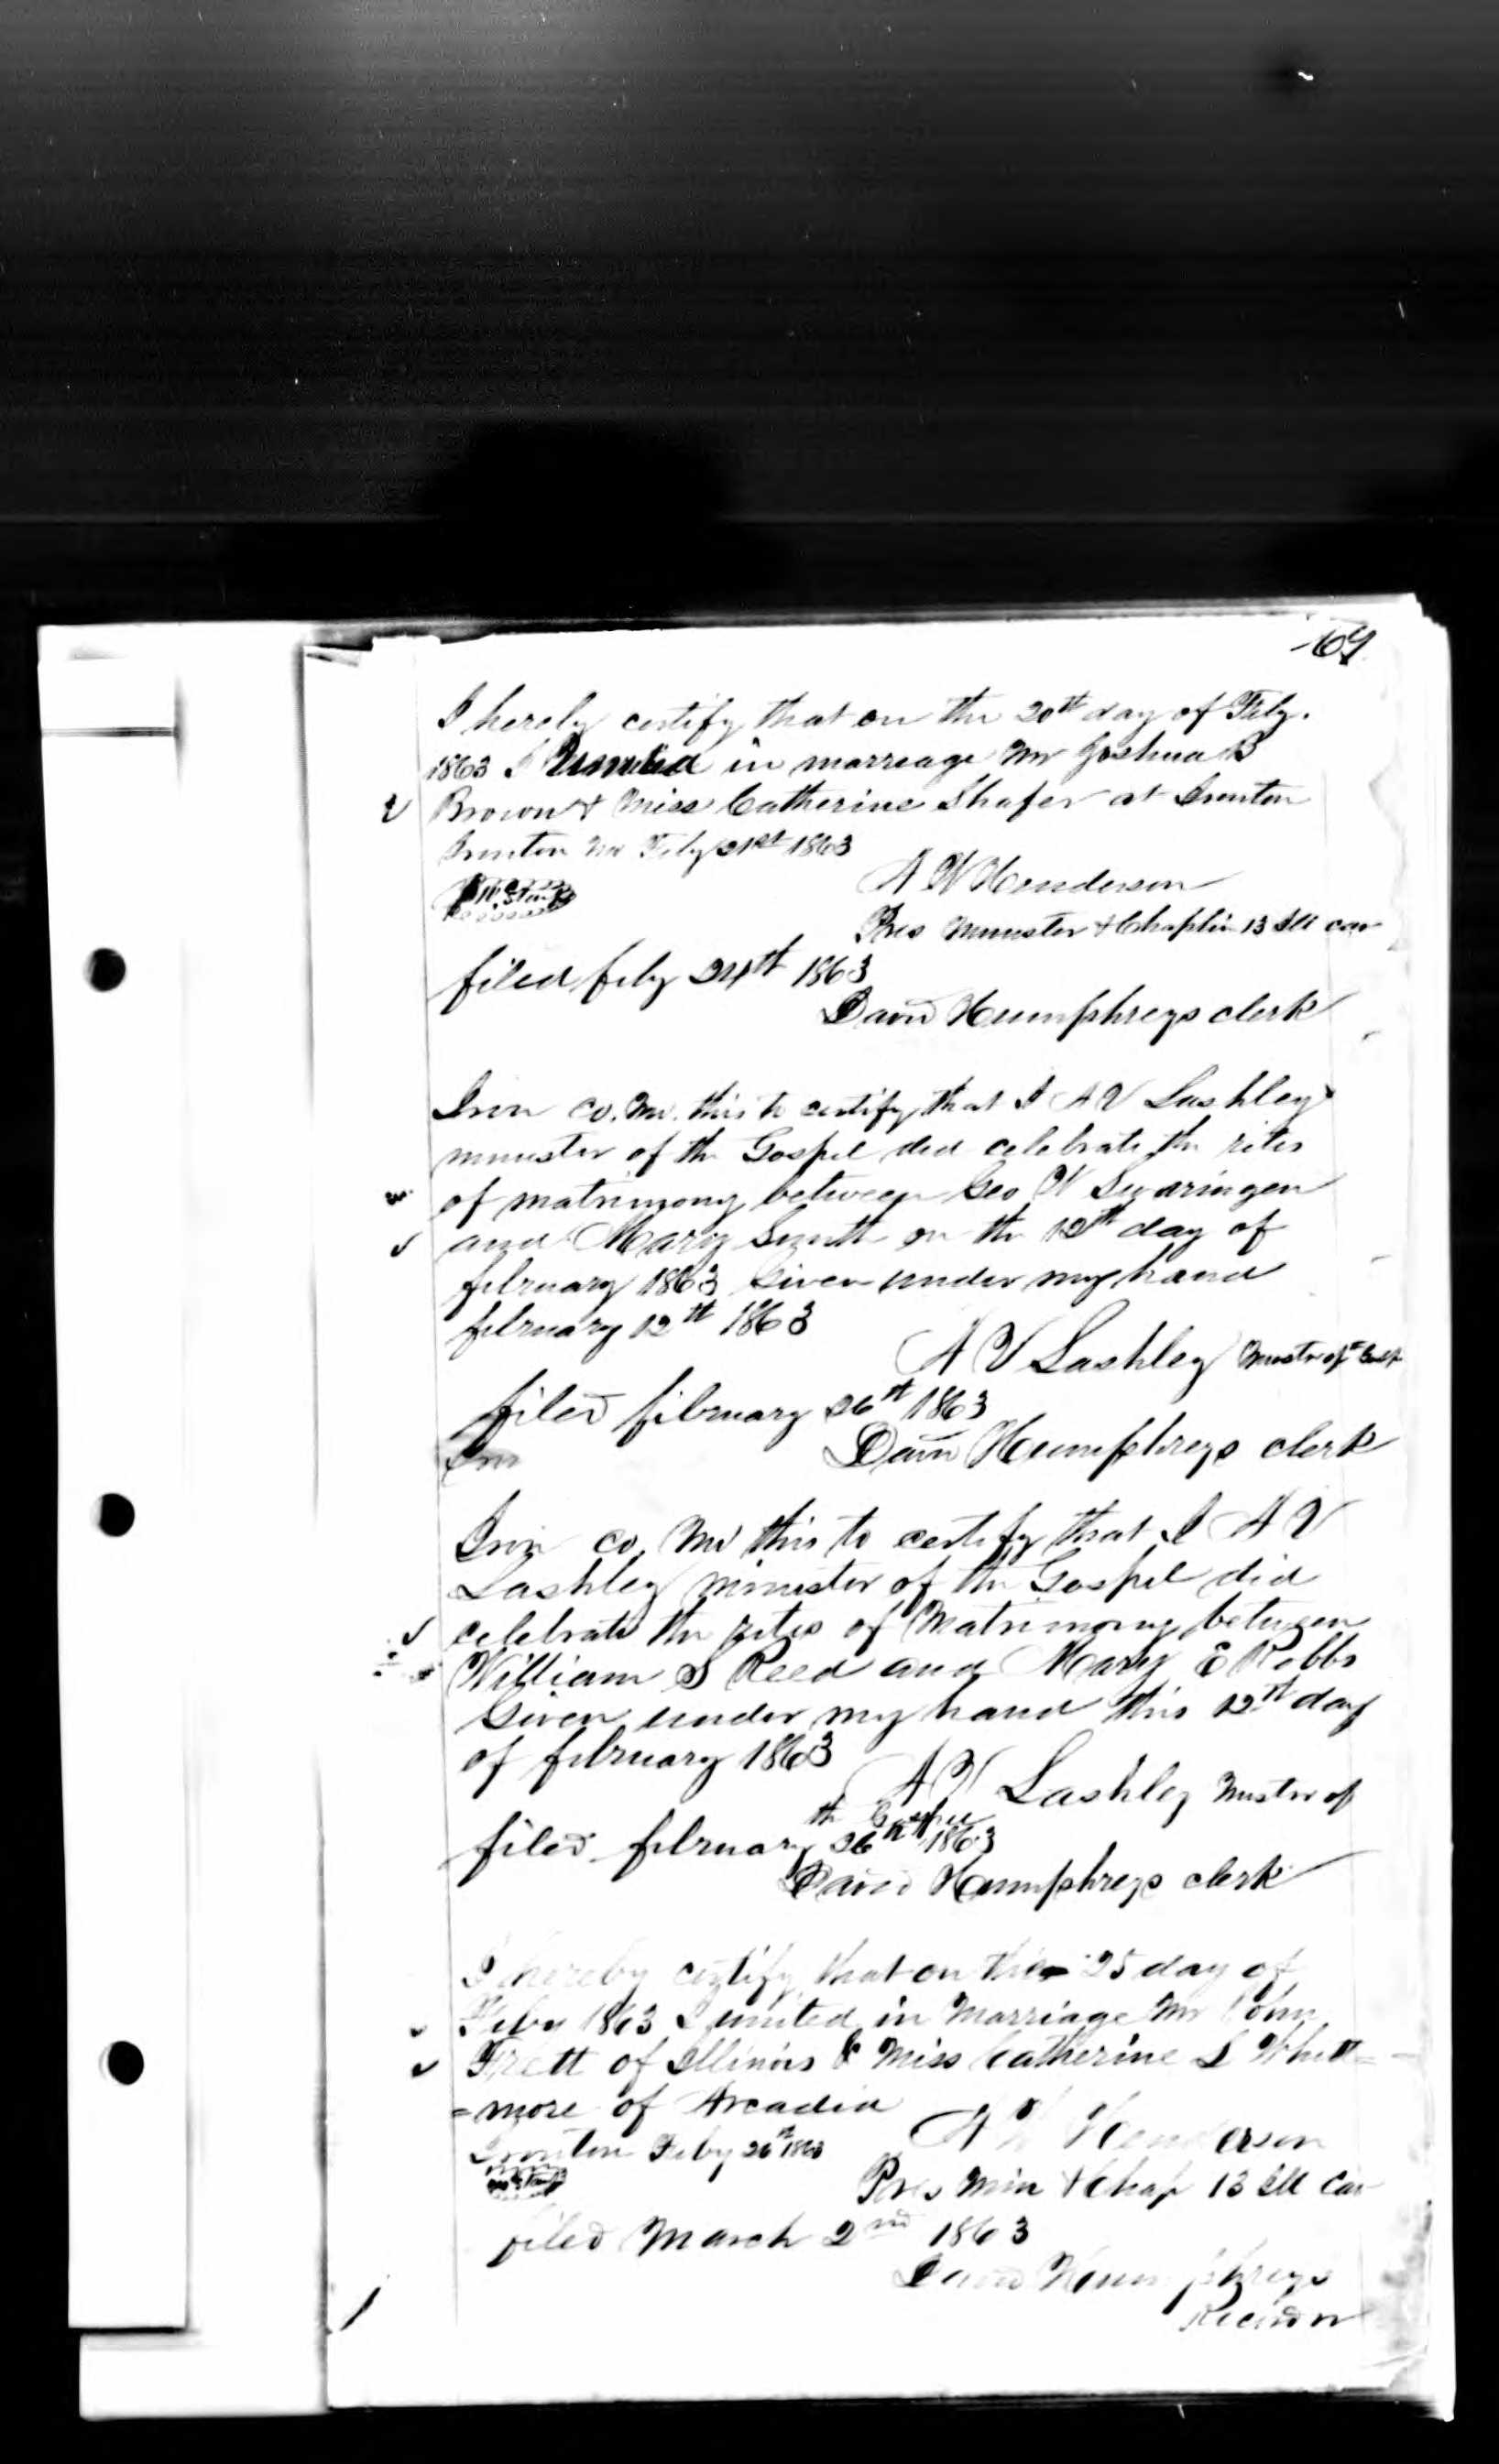 69
I hereby certify that on the 20th day of Feby.
1863 I united in marriage Mr Joshua B
Brown & Miss Catherine Shafer at Ironton
Ironton Mo Feby 21st 1863
A W Henderson
Pres Minister & Chaplin 13 Ill cav
filed feby 24th 1863
David Humphreys clerk
Iron co. Mo. this to certify that I A V Lashley
minister of the Gospel did celebrate the rites
of matrimony between Geo W Swaringen
and Mary Smith on the 12th day of
february 1863 Given under my hand
february 12th 1863
A V Lashley
filed february 26th 1863
David Humphreys clerk
Iron
Iron co. Mo this to certify that I A V
Lashley minister of the Gospel did
celebrate the rites of Matrimony between
William S Reed and Mary E Robbs
Given under my hand this 12th day
of february 1863
A V Lashley Minstr of
th Gospel
filed february 26th 1863
David Humphreys clerk
I hereby certify that on the 25 day of
Feby 1863 I united in Marriage Mr John
Trett of Illinois & Miss Catherine L Whitt=
=more of Arcadia
Ironton Feby 26th 1863
A W Henderson
Pres Min & Chap 13 Ill Cav
filed March 2nd 1863
David Humphreys
Recorder